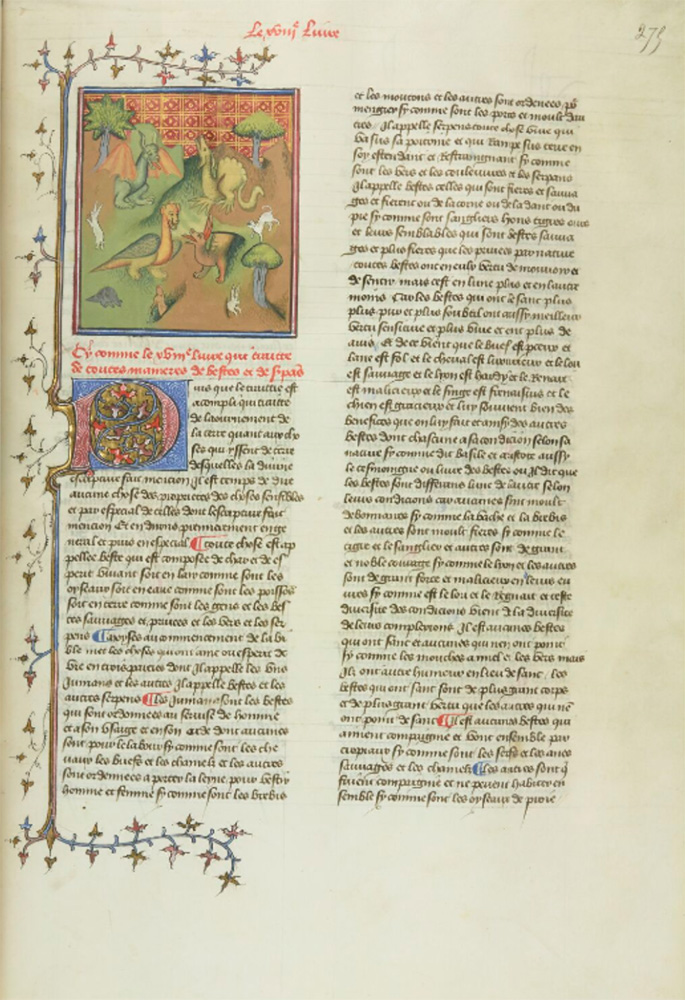 Le xviije Livre
275
Cy comme le xviije livre qui traitte
de toutes manieres de bestes et de serpens
Puis que le traittie est
acompli qui traitte
de laournement de
la terre quant aux cho
ses qui yssent de terre
desquelles la divine
escripture fait mencion Il est temps de dire
aucune chose des proprietes des choses sensibles
et par especial de celles dont lescripture fait
mencion Et en dirons premierement en ge
neral et puis en especial Toute chose est ap
pellee beste qui est composee de char et de es
perit vivant soit en lair comme sont les
oyseaux soit en eaue comme sont les poissons
soit en terre comme sont les gens et les bes
tes sauvages et privees et les vers et les ser
pens Moyses au commencement de la bi
ble met les choses qui ont ame ou esperit de
vie en trois parties dont Il appelle les uns
Jumens et les autres Il appelle bestes et les
autres serpens Les Jumens sont les bestes
qui sont ordonnees au servise de homme
et a son usaige et en son aide dont aucunes
sont pour le labour sy comme sont les che
vaux les buefs et les chameulx et les autres
sont ordennees a porter la leyne pour vestir
homme et femme sy comme sont les brebis
et les moutons et les autres sont ordenees po
mengier sy comme sont les pors et moult dau
tres Il appelle serpens toute chose vive qui
va sus sa poitrine et qui rampe sus terre en
soy estendant et restraingnant sy comme
sont les vers et les couleuvres et les serpens
Il appelle bestes celles qui sont fieres et sauva
ges et fierent ou de la corne ou de la dant ou du
pie sy comme sont sangliers lyons tygres ours
et leurs semblables qui sont bestes sauva
ges et plus fieres que les privees par nature
toutes bestes ont en eulx vertu de mouvoir et
de sentir mais cest en lune plus et en lautre
moins Car les bestes qui ont le sanc plus
plus pur et plus soubtil ont aussy meilleur
vertu sensitive et plus vive et ont plus de
avis Et de ce vient que le buef est et
lasne est fol et le cheval est luxurieux et le lou
est sauvage et le lyon est hardy et le Renart
est malicieux et le singe est et le
chien est gracieux et luy souvient bien des
benefices que on luy fait et ainsy des autres
bestes dont chascune a sa condicion selon sa
nature sy comme dit Basile et aristote aussy
le tesmoingne ou livre des bestes ou Il dit que
les bestes sont differans lune de lautre selon
leurs condicions car aucunes sont moult
debonnaires sy comme la vache et la brebis
et les autres sont moult fieres sy comme le
tigre et le sanglier et autres sont de grant
et noble couraige sy comme le lyon et les autres
sont de grant force et malicieux en leurs eu
vres sy comme est le lou et le regnart et ceste
diversite des condicions vient de la diversite
de leurs complexions Il est aucunes bestes
qui ont sanc et aucunes qui nen ont point
sy comme les mouches a miel et les vers mais
Ils ont autre humeur en lieu de sanc les
bestes qui ont sanc sont de plus grant corps
et de plus grant vertu que les autres qui nen
ont point de sanc Il est aucunes bestes qui
aiment compaignie et vont ensemble par
tropeaux sy comme sont les serfs et les asnes
sauvages et les chameulx Les autres sont qui
fuient compaignie et ne pevent habiter en
semble sy comme sont les oyseaux de proie